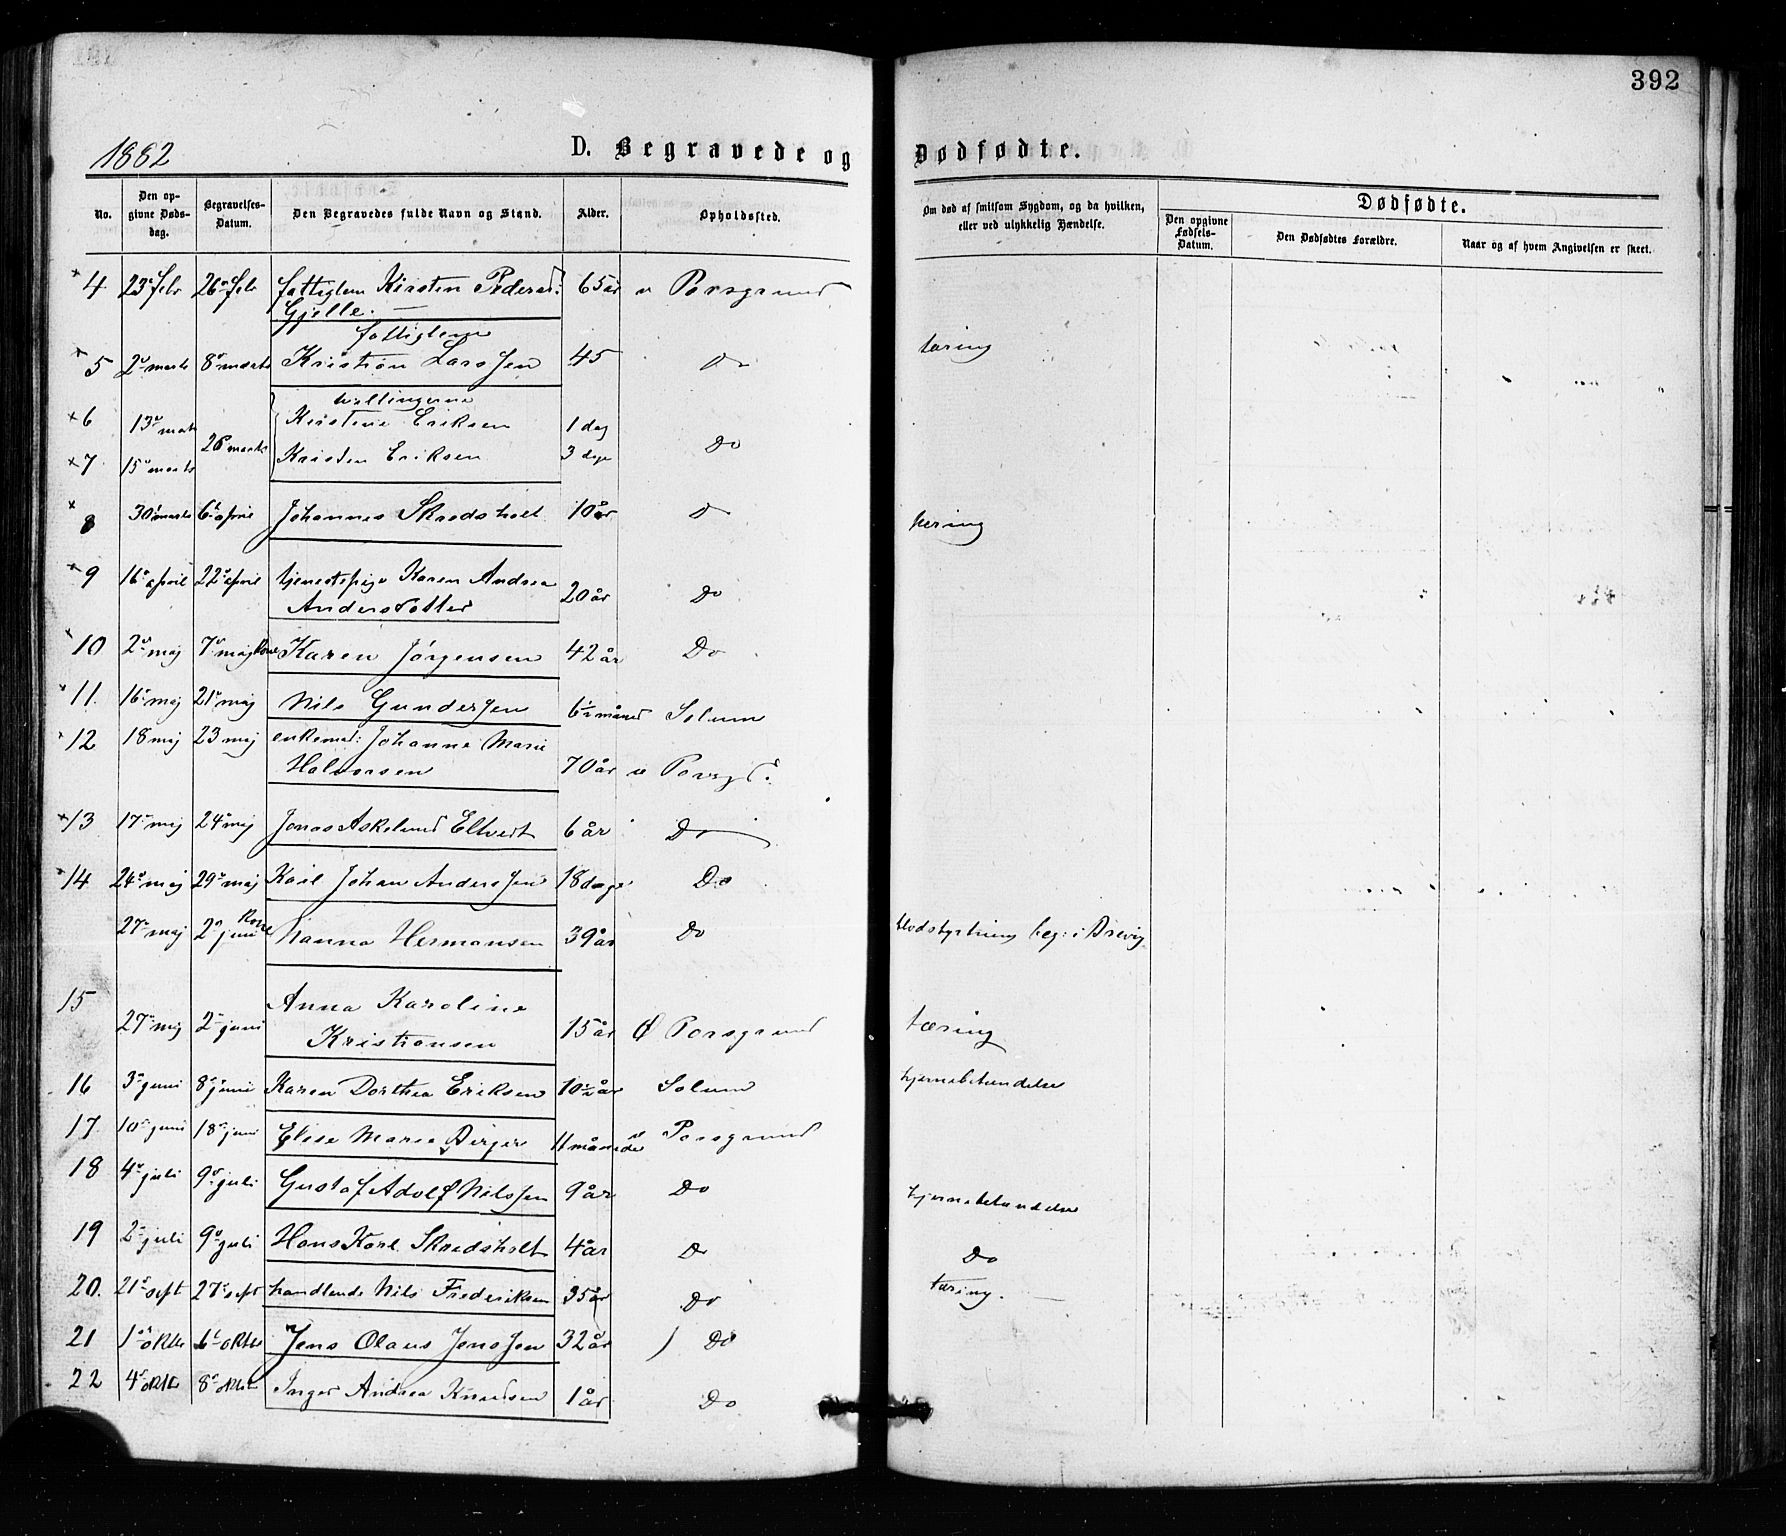 392
1882 D. Begravede og Dødfødte.
No. Den opgivne Dødsdag. Begravelses-Datum. Den Begravedes fulde Navn og Stand. Alder. Opholdssted. Om død af smitsom Sygdom, og da hvilken, eller ved ulykkelig Hændelse. Dødfødte.
Den opgivne Fødsels-Datum. Den Dødfødtes Forældre. Naar og af hvem Angivelsen er skeet.
4 23 febr 26 febr fattiglem Kirsten Pedersd: 65 år v Porsgrund
Gjelle.
fattiglem
5 2 marts 8 marts Kristian Larssen 45 Do tæring
tvillingerne
6 13 marts Kirstine Eriksen 1 dag
26 marts Do
7 15 marts Kristen Eriksen 3 dage
8 30 marts 6 april Johannes Skredsholt 10 år D tæring
9 16 april 22 april tjenestepige Karen Andrea
Andersdatter 20 år Do
10 2 maj 7 maj Kone Karen Jörgensen 42 år Do
11. 16 maj 21 maj Nils Gunderssen 6½ måned Solum
12 18 maj 23 maj enkemad: Johanne Marie
Halvorsen 70 år v Porsgd.
13 17 maj 24 maj Jonas Askelund Eltvedt 6 år Do
14 24 maj 29 maj Karl Johan Anderssen 18 dage Do
27 maj 2 juni Kone Nanna Hermansen 39 år Do blodstyrtning beg: i Brevig
15 Anna Karoline
27 maj 2 juni Kristiansen 15 år Ø Porsgrund tæring
16 3 juni 8 juni Karen Dorthea Eriksen 10½ år Solum hjernebetændelse
17. 10 juni 18 juni Elise Marie Birger 11 måneder v Porsgrund
18 4 juli 9 juli Gustaf Adolf Nilssen 9 år Do hjernebetændelse
19 2 juli 9 juli Hans Karl Skredsholt 4 år Do Do
20. 21 sept 27 sept handlende Nils Frederiksen 35 år Do tæring.
21 1 oktbr 6 oktbr Jens Olaus Jenssen 32 år Do
22 4 oktb 8 oktbr Inger Andrea Knudsen 1 år Do